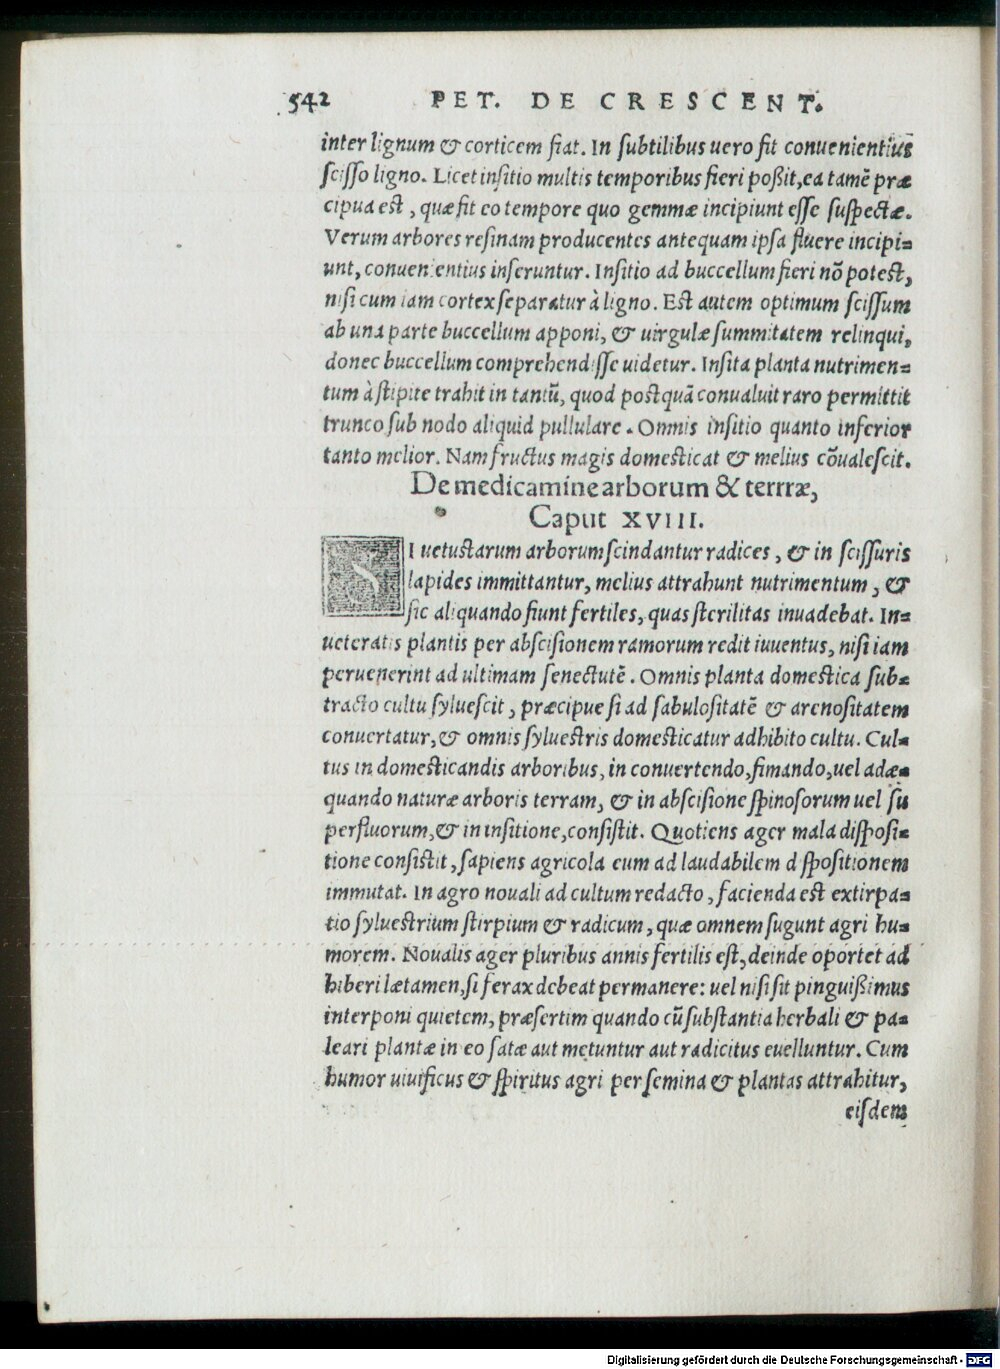 542 PET. DE CRESCENT.
inter lignum & corticem fiat. In subtilibus uero fit conuenientius
scisso ligno. Licet insitio multis temporibus fieri poßit, ea tamẽ præ
cipua est, quæ fit eo tempore quo gemmæ incipiunt esse suspectæ.
Verum arbores resinam producentes antequam ipsa fluere incipi=
unt, conuenientius inseruntur. Insitio ad buccellum fieri nõ potest,
nisi cum iam cortex separatur à ligno. Est autem optimum scissum
ab una parte buccellum apponi, & uirgulæ summitatem relinqui,
donec buccellum comprehendisse uidetur. Insita planta nutrimen=
tum à stipite trahit in tantũ, quod postquã conualuit raro permittit
trunco sub nodo aliquid pullulare. Omnis insitio quanto inferior
tanto melior. Nam fructus magis domesticat & melius cõualescit.
De medicamine arborum & terrræ,
Caput XVIII.
SI uetustarum arborum scindantur radices, & in scissuris
lapides immittantur, melius attrahunt nutrimentum, &
sic aliquando fiunt fertiles, quas sterilitas inuadebat. In=
ueteratis plantis per abscisionem ramorum redit iuuentus, nisi iam
peruenerint ad ultimam senectutẽ. Omnis planta domestica sub=
tracto cultu syluescit, præcipue si ad sabulositatẽ & arenositatem
conuertatur, & omnis syluestris domesticatur adhibito cultu. Cul=
tus in domesticandis arboribus, in conuertendo, fimando, uel adæ=
quando naturæ arboris terram, & in abscisione spinosorum uel su
perfluorum, & in insitione, consistit. Quotiens ager mala disposi=
tione consistit, sapiens agricola eum ad laudabilem dispositionem
immutat. In agro nouali ad cultum redacto, facienda est extirpa=
tio syluestrium stirpium & radicum, quæ omnem sugunt agri hu=
morem. Noualis ager pluribus annis fertilis est, deinde oportet ad
hiberi lætamen, si ferax debeat permanere: uel nisi sit pinguißimus
interponi quietem, præsertim quando cũ substantia herbali & pa=
leari plantæ in eo satæ aut metuntur aut radicitus euelluntur. Cum
humor uiuificus & spiritus agri per semina & plantas attrahitur,
eisdem
Digitalisierung gefördert durch die Deutsche Forschungsgemeinschaft - DFG